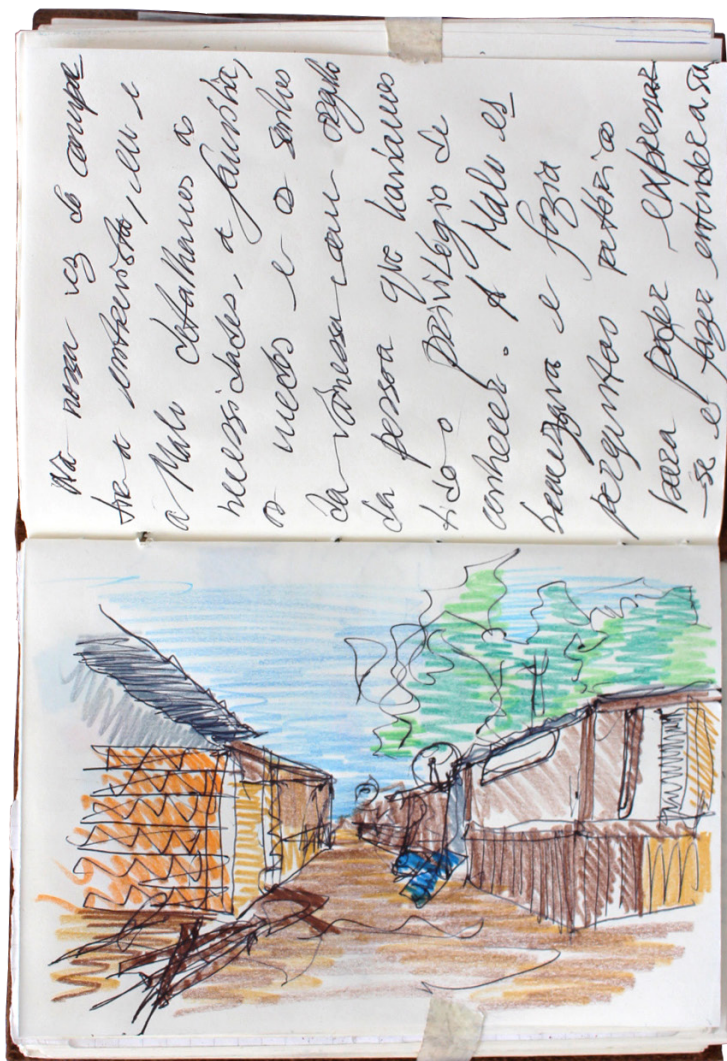 Na nossa vez de
a entrevista, eu e
a Malu detalhamos as
necessidades, a familia,
os medos e o sonho
da Vanessa com
da pessoa que haviamos
tido o privilégio de
conhecer. A Malu es
e fazia
perguntas
para poder expressar
-se e fazer entender a sua